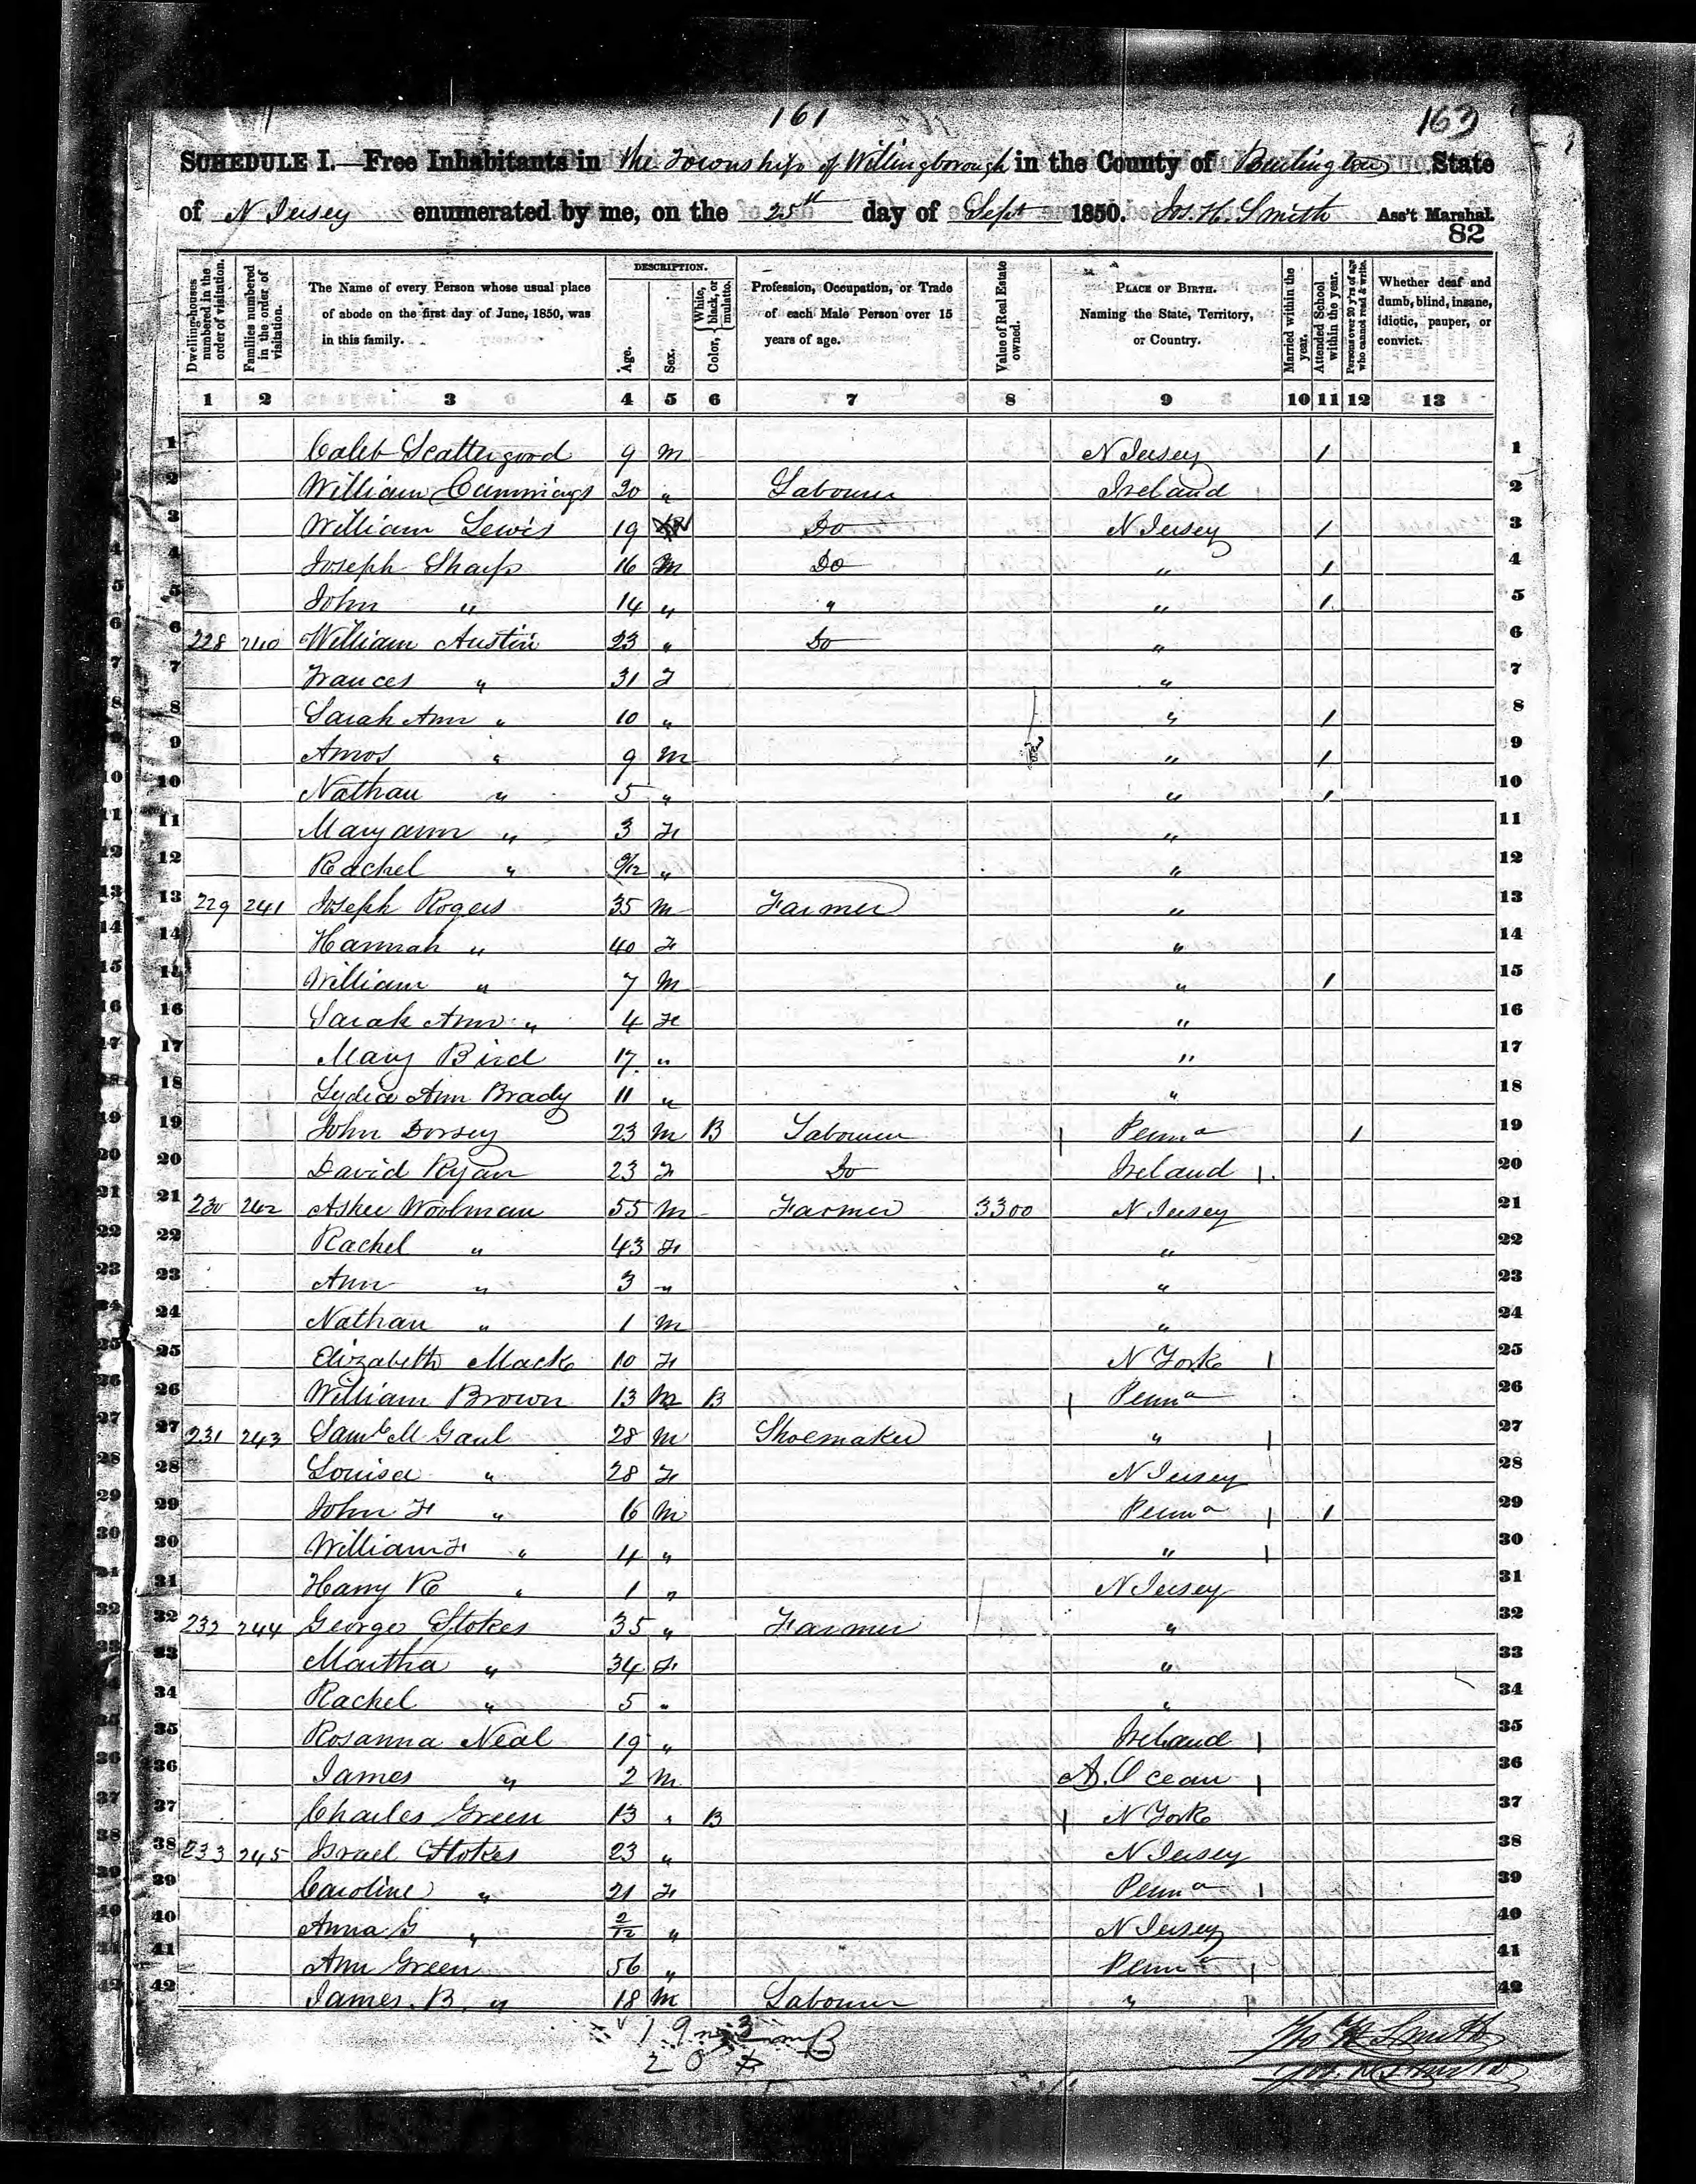 161
163
SCHEDULE I.—Free Inhabitants in the Township of Willingborough in the County of Burlington State
of N Jersey enumerated by me, on the 25th day of Sept 1850. Jos. H. Smith Ass't Marshal.
82
Dwelling-houses numbered in the order of visitation.
Families numbered in the order of visitation.
The Name of every Person whose usual place of abode on the first day of June, 1850, was in this family.
DESCRIPTION.
Age.
Sex.
Color, { White, black, or mulatto.
Profession, Occupation, or Trade of each Male Person over 15 years of age.
Value of Real Estate owned.
PLACE OF BIRTH. Naming the State, Territory, or Country.
Married within the year.
Attended School within the year.
Persons over 20 y'rs of age who cannot read & write.
Whether deaf and dumb, blind, insane, idiotic, pauper, or convict.
1 2 3 4 5 6 7 8 9 10 11 12 13
1 Caleb Scattergood 9 M N Jersey 1 1
2 William Cummings 20 " Labourer Ireland 2
3 William Lewis 19 Do N Jersey 1 3
4 Joseph Sharp 16 M Do " 1 4
5 John " 14 " " " 1 5
6 228 240 William Austin 23 " Do " 6
7 Frances " 31 F " 7
8 Sarah Ann " 10 " " 1 8
9 Amos " 9 M " 1 9
10 Nathan " 5 " " 1 10
11 Mary ann " 3 F " 11
12 Rachel " 9/12 " " 12
13 229 241 Joseph Rogers 35 M Farmer " 13
14 Hannah " 40 F " 14
15 William " 7 M " 1 15
16 Sarah Ann " 4 F " 16
17 Mary Bird 17 " " 17
18 Lydia Ann Brady 11 " " 18
19 John Dorsey 23 M B Labourer Penna 1 19
20 David Ryan 23 F Do Ireland 20
21 230 242 Asher Woolman 55 M Farmer 3300 N Jersey 21
22 Rachel " 43 F " 22
23 Ann " 3 " " 23
24 Nathan " 1 M " 24
25 Elizabeth Mack 10 F N York 25
26 William Brown 13 M B Penna 26
27 231 243 Saml M Gaul 28 M Shoemaker " 27
28 Louisa " 28 F N Jersey 28
29 John F " 6 M Penna 1 29
30 William F " 4 " " 30
31 Harry R " 1 " N Jersey 31
32 232 244 George Stokes 35 " Farmer " 32
33 Martha " 34 F " 33
34 Rachel " 5 " " 34
35 Rosanna Neal 19 " Ireland 35
36 James " 2 M A. Ocean 36
37 Charles Green 13 " B N York 37
38 233 245 Israel Stokes 23 " N Jersey 38
39 Caroline " 21 F Penna 39
40 Anna G " 2/12 " N Jersey 40
41 Ann Green 56 " Penna 41
42 James B. " 18 M Labourer " 42
19 3 m B
20
Jos H Smith